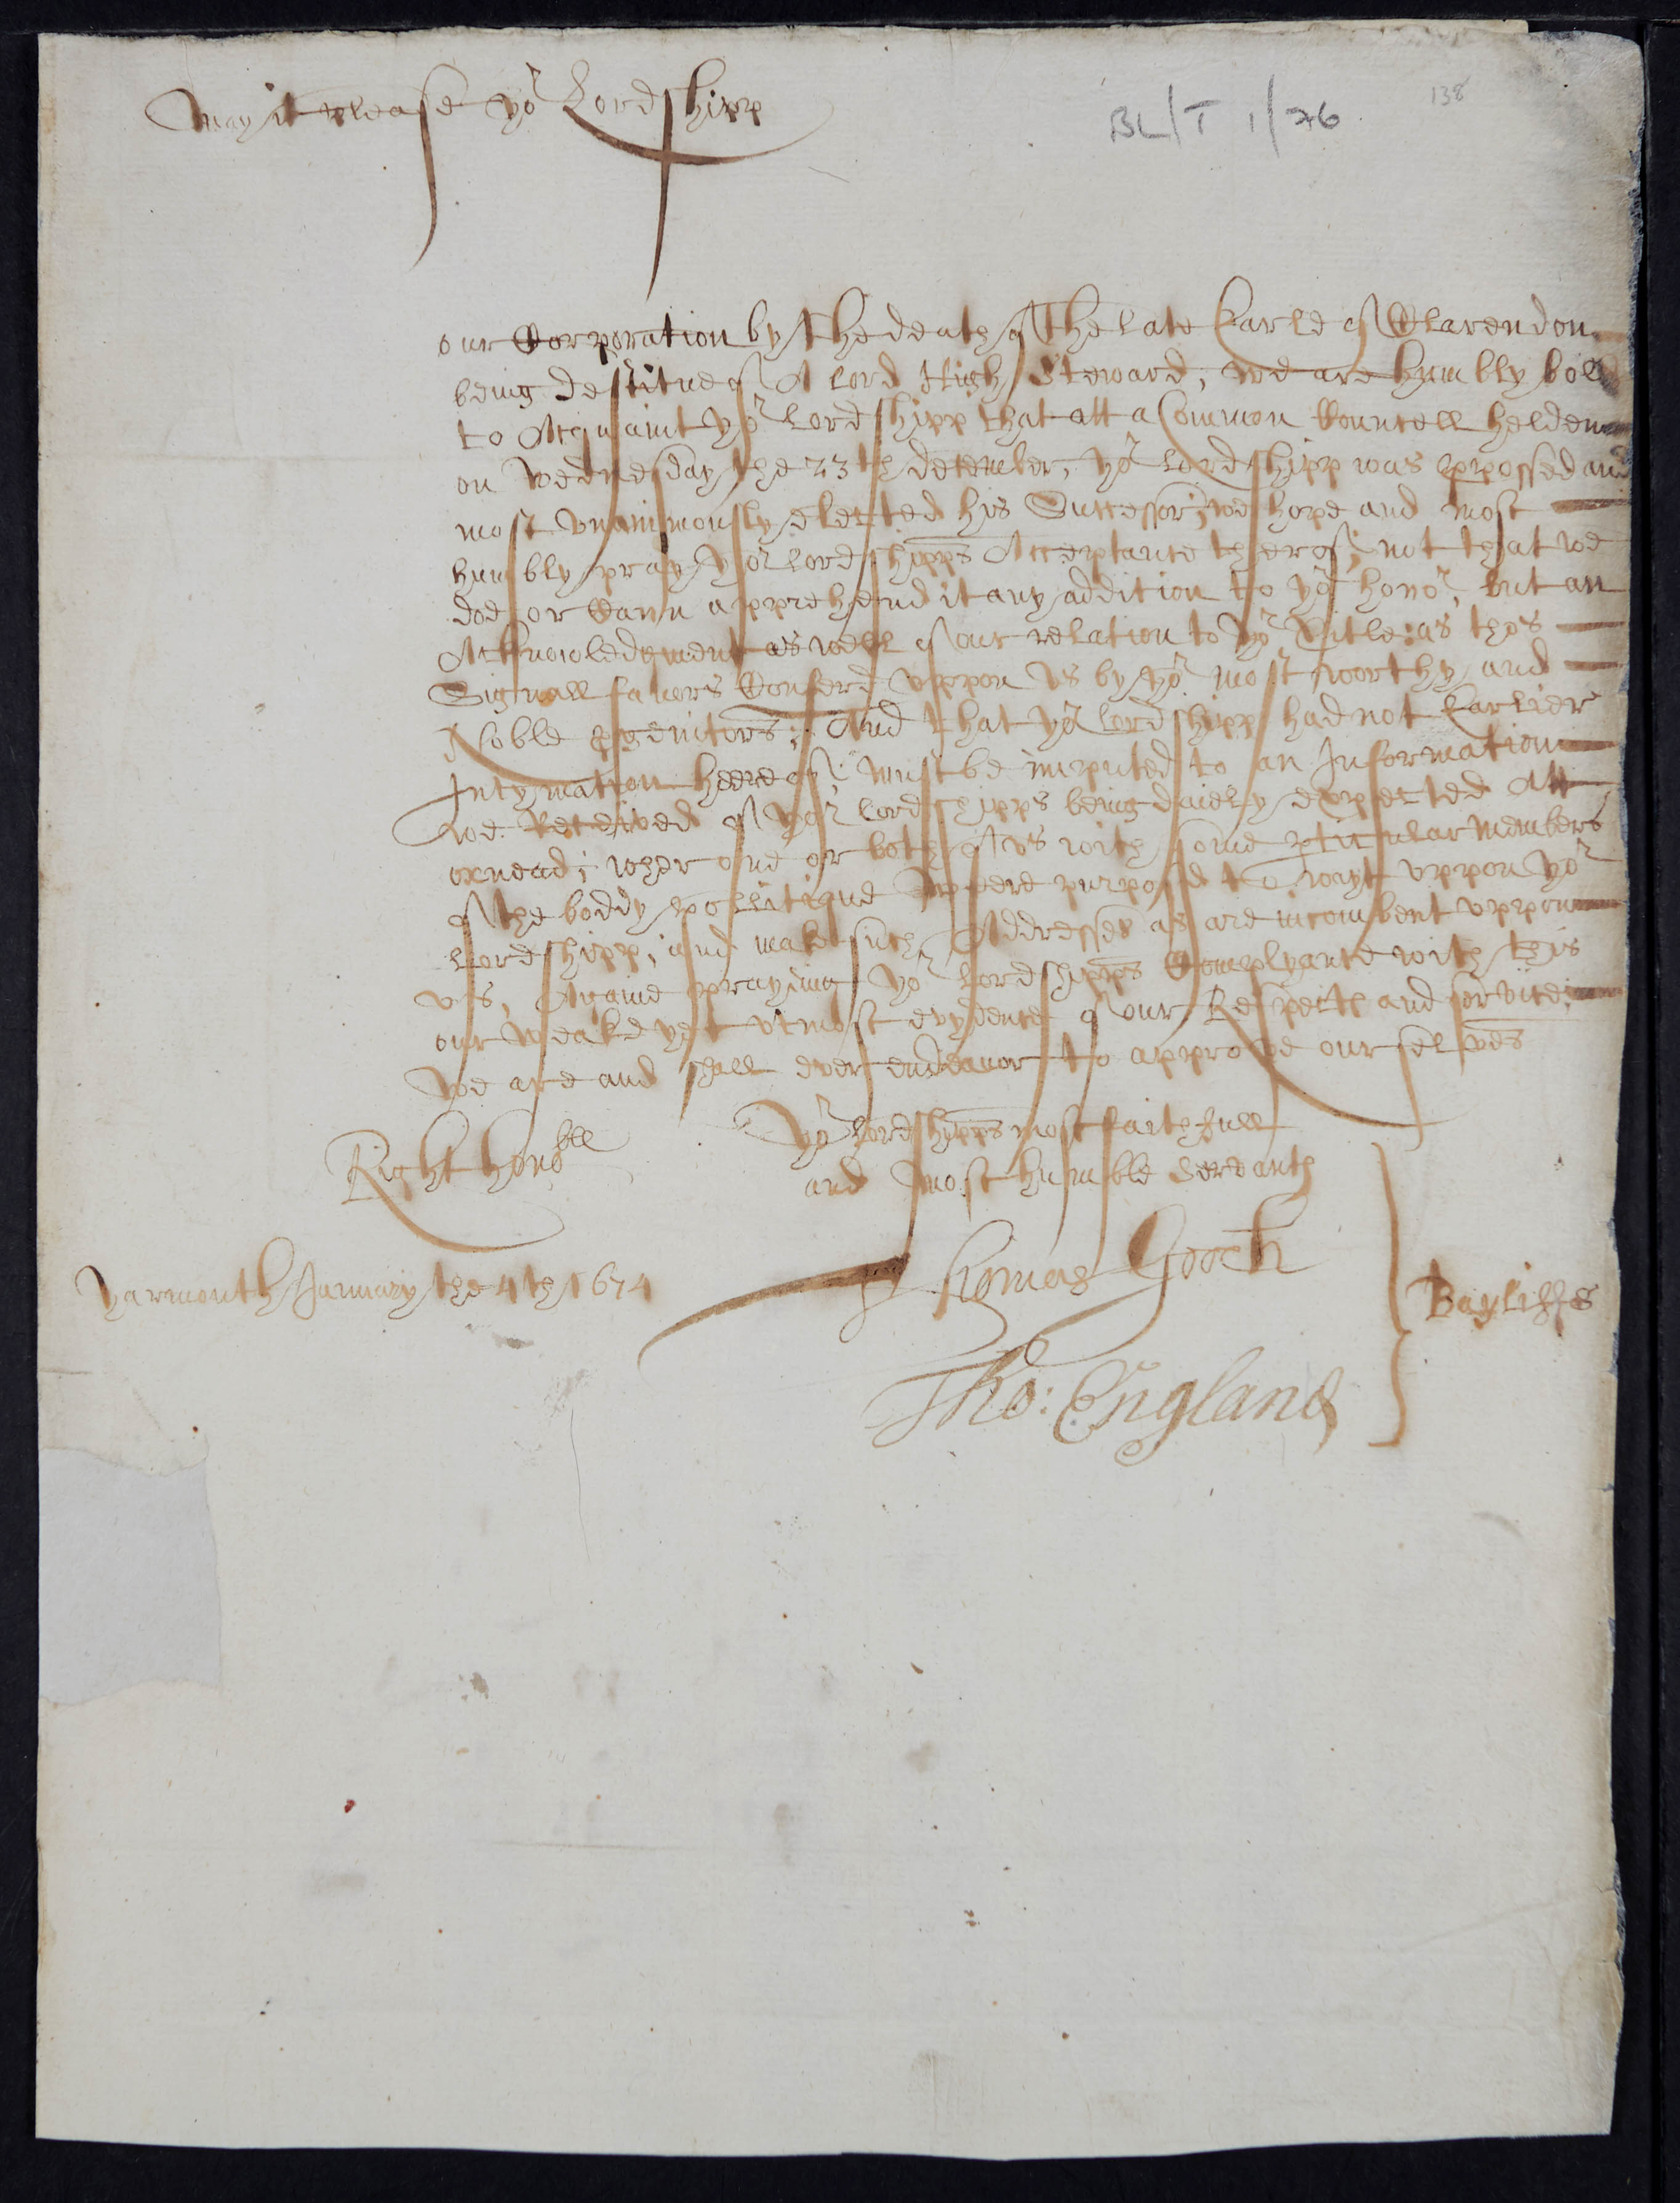 May it please yor Lordshipp
BL/T 1/76
138
our Corporation by the death of the late Earle of Clarendon
being destitue of A Lord High Steward, we are humbly bold
to Acquaint yor Lordshipp that att a Common Councell helden
on wednesday the 23th december, yor Lordshipp was ppossed and
most vnanimously elected his Successor; we hope and most
humbly pray yor Lordshipps Acceptance therof; not that we
doe or Cann apprehend it any addition to yor honor, but an
Acknowledgment as well of our relation to yor Title: as thos
Signall favors Conferd vppon vs by yor most worthy and
Noble pgenitors; And that yor Lordshipp had not Earlier
Intymation heereof; must be imputed to an Information
we Received of yor Lordshipps being daiely expected Att
oxnead; wher one or both of vs with some pticular Members
of the boddy pollitique weere purposd to wayt vppon yor
Lordshipp; and make such Addresses as are incombent vppon
vs, Againe praying yor Lordshipps Complyance with this
our weake yet vtmost evydence of our Respects and service;
we are and shall ever endeavor to approve our selves
Yor Lordshipps most faithfull
Right honoble
and most humble Servants
Thomas Gooch
Yarmouth January the 4th 1674
Bayliffs
Tho: England